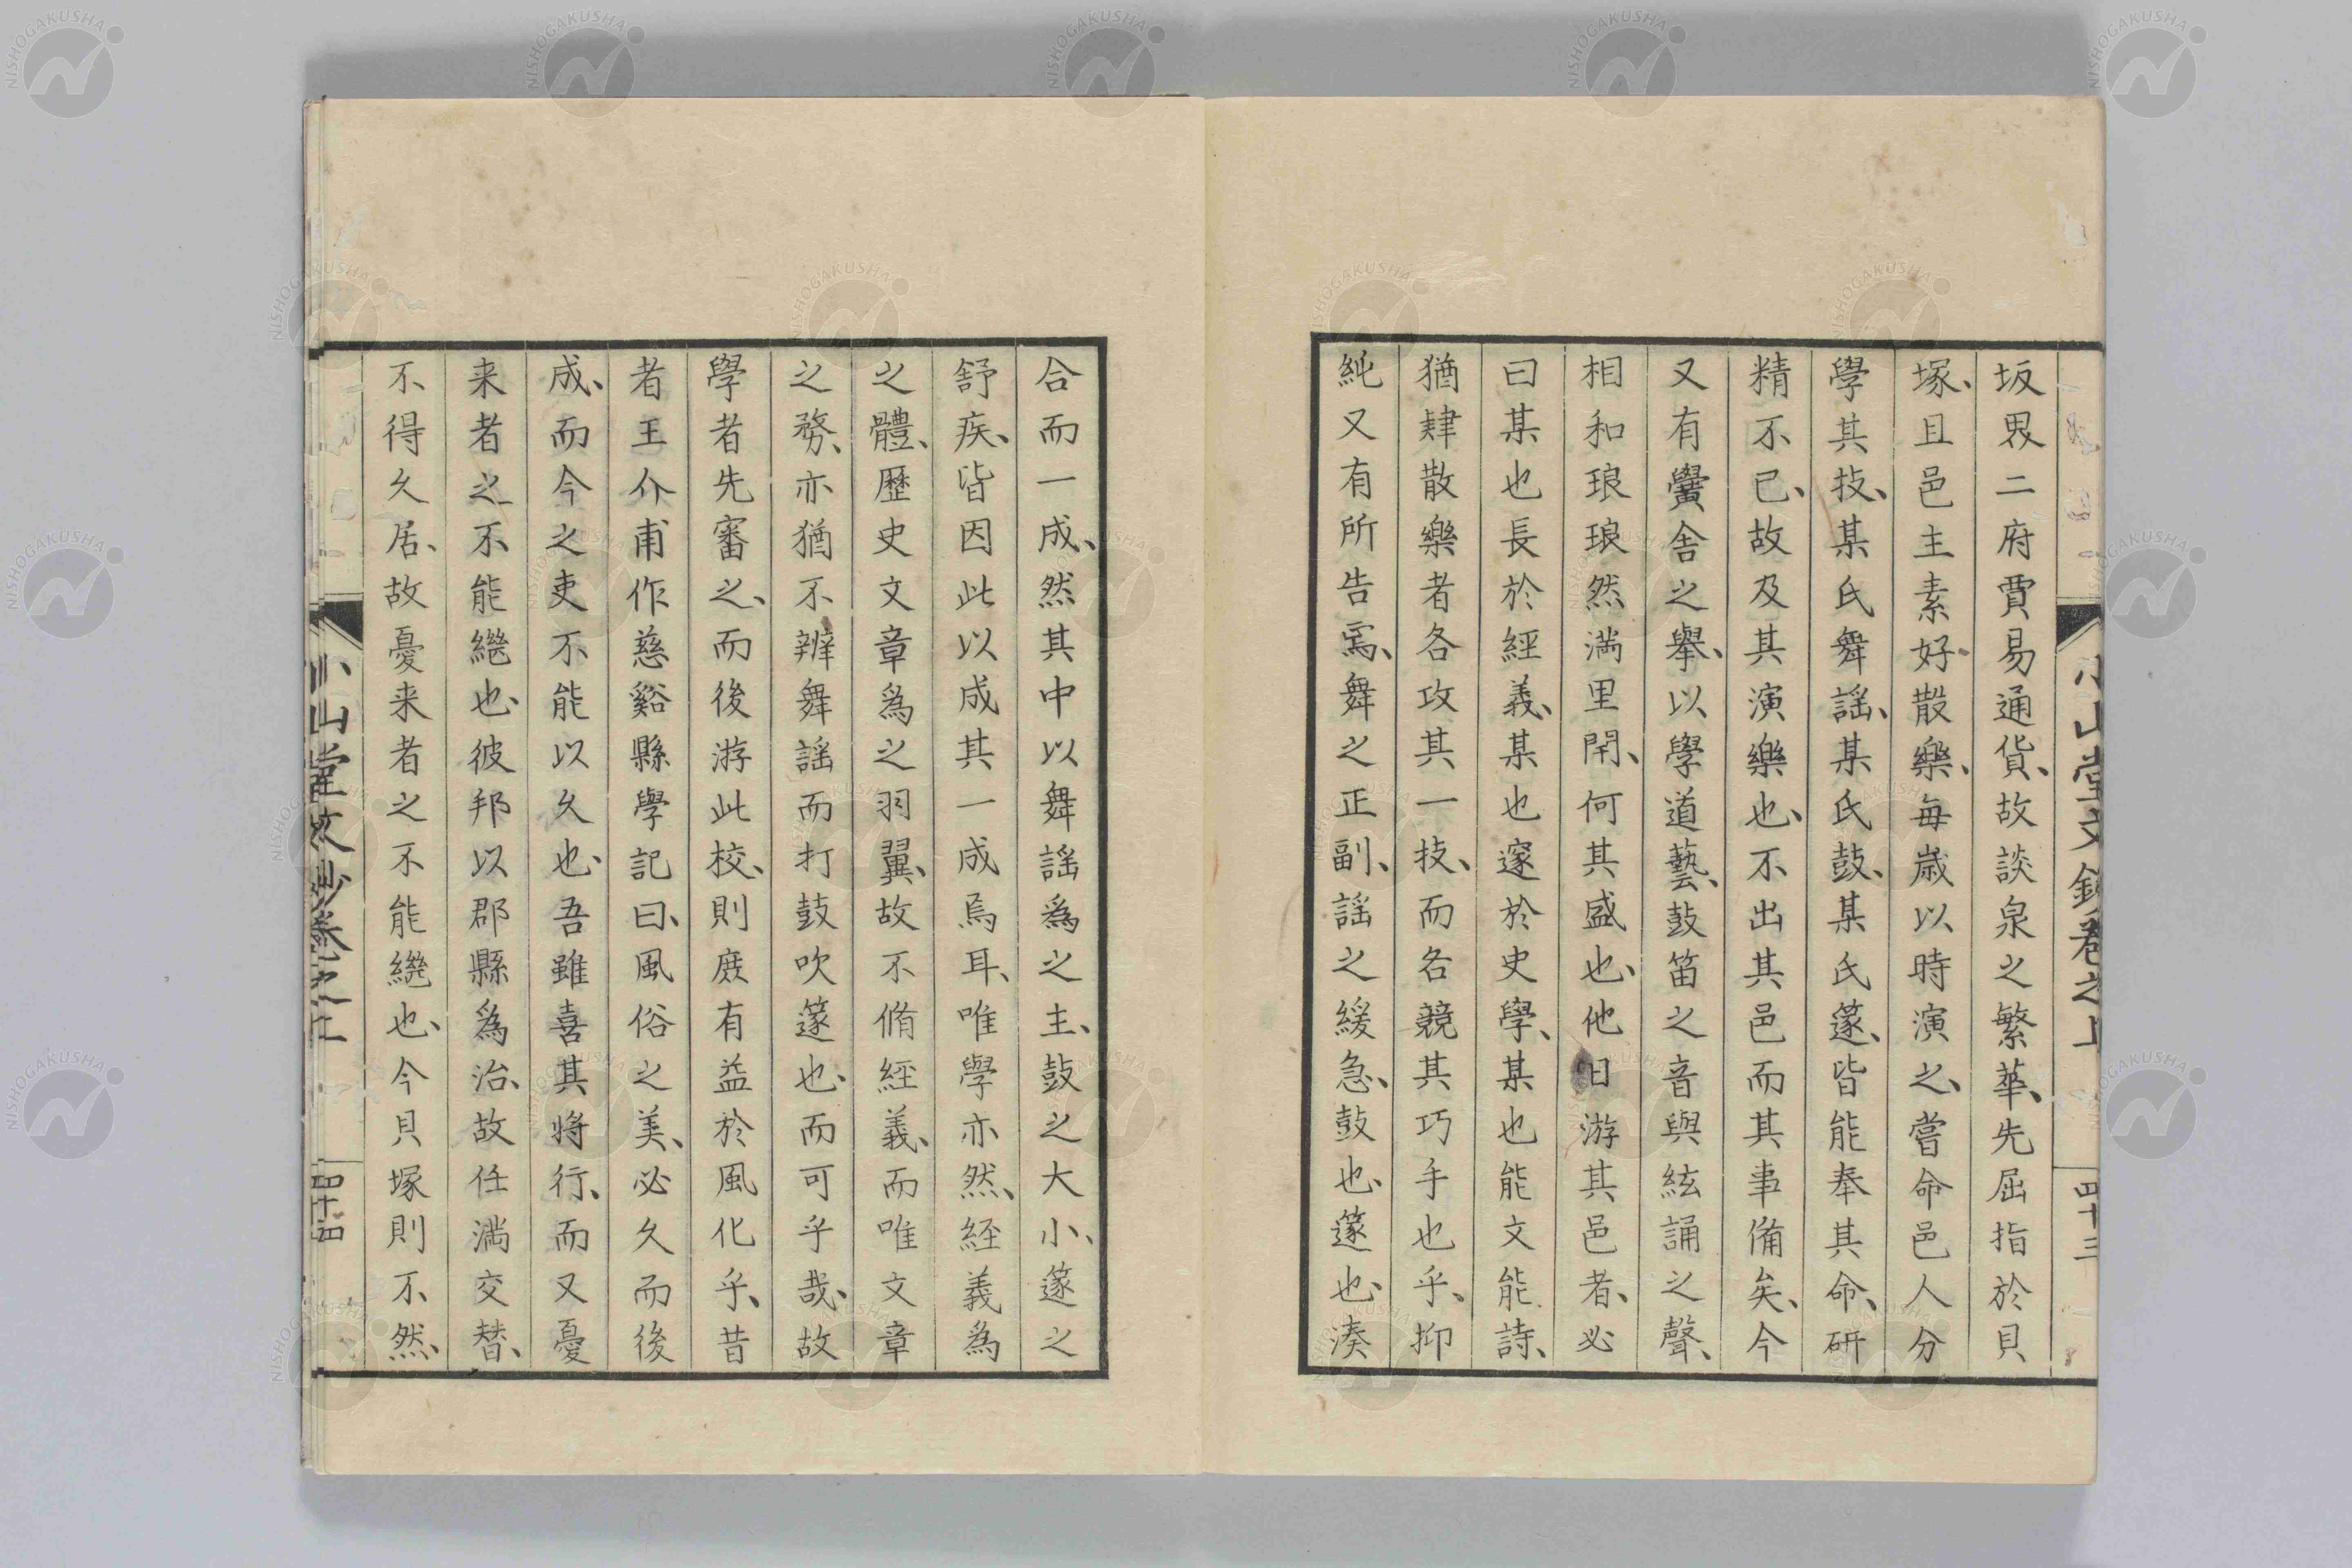 坂界二府賈易通貨、故談泉之繁華、先屈指於貝
塚、且邑主素好散樂、每歲以時演之、嘗命邑人分
學其技、某氏舞謡、某氏鼓、某氏篴、皆能奉其命、研
精不已、故及其演樂也、不出其邑而其事備矣、今
又有黌舍之舉、以學道藝、鼓笛之音與絃誦之聲、
相和琅琅然滿里閈、何其盛也、他日游其邑者、必
曰某也長於經義、某也邃於史學、某也能文能詩、
猶肄散樂者各攻其一技、而各競其巧手也乎、抑
純又有所告焉、舞之正副、謡之緩急、鼓也、篴也、湊
小山堂文鈔卷之上
四十三
合而一成、然其中以舞謡爲之主、鼓之大小、篴之
舒疾、皆因此以成其一成焉耳、唯學亦然、經義爲
之體、歷史文章爲之羽翼、故不脩經義、而唯文章
之務、亦猶不辨舞謡而打鼓吹篴也、而可乎哉、故
學者先審之、而後游此校、則庶有益於風化乎、昔
者王介甫作慈谿縣學記曰、風俗之美、必久而後
成、而今之吏不能以久也、吾雖喜其將行、而又憂
来者之不能繼也、彼邦以郡縣爲治、故任滿交替、
不得久居、故憂来者之不能繼也、今貝塚則不然、
小山堂文鈔卷之上
四十四
NISHOGAKUSHA